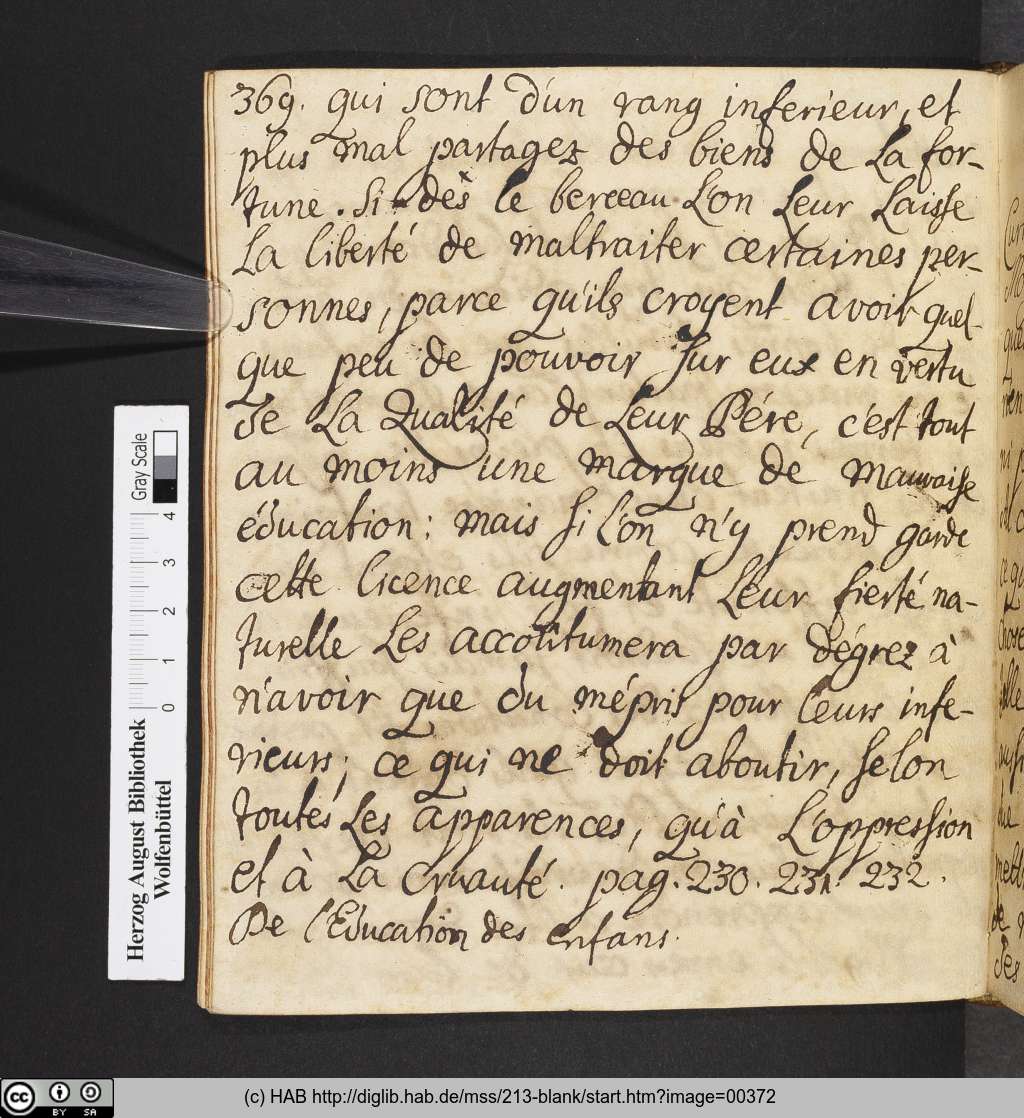 369. qui sont d'un rang inferieur, et
plus mal partagez des biens de La for-
tune. Si dès le berceau L'on Leur Laisse
La liberté de maltraiter certaines per-
sonnes, parce qu'ils croyent avoir quel-
que peu de pouvoir sur eux en vertu
de La Qualité de Leur Pére, c'est tout
au moins une marque de mauvaise
éducation: mais si l'on n'y prend garde
cette licence augmentant Leur fierté na-
turelle Les accoûtumera par dégrez à
n'avoir que du mépris pour leurs infe-
rieurs; ce qui ne doit aboutir, selon
toutes Les apparences, qu'à L'oppression
et à La Cruauté. pag. 230. 231. 232.
De l'Education des enfans.
Herzog August Bibliothek
Wolfenbüttel
Gray Scale
0 1 2 3 4
(c) HAB http://diglib.hab.de/mss/213-blank/start.htm?image=00372
cc BY SA